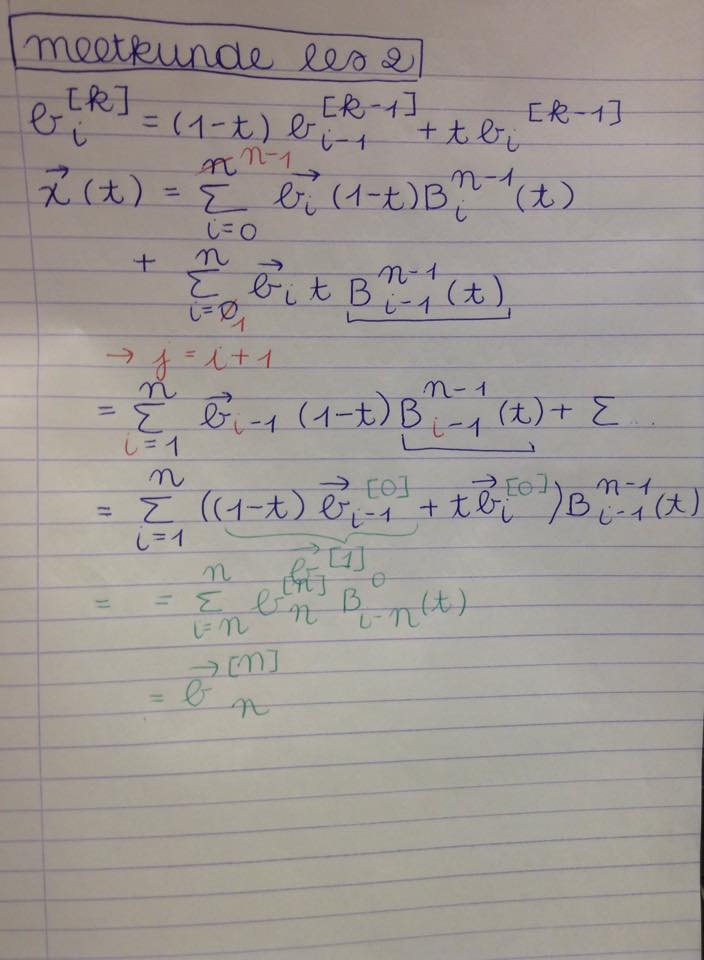 meetkunde les 2
b_i^[k] = (1-t) b_{i-1}^[k-1] + t b_i^[k-1]
x⃗(t) = Σ_{i=0}^{n-1} b⃗_i (1-t) B_i^{n-1}(t)
+ Σ_{i=1}^{n} b⃗_i t B_{i-1}^{n-1}(t)
→ j = i + 1
= Σ_{i=1}^{n} b⃗_{i-1} (1-t) B_{i-1}^{n-1}(t) + Σ ...
= Σ_{i=1}^{n} ((1-t) b⃗_{i-1}^[0] + t b⃗_i^[0]) B_{i-1}^{n-1}(t)
b⃗^[1]
= = Σ_{i=n}^{n} b_n^[n] B_{i-n}^0(t)
= b⃗_n^[n]